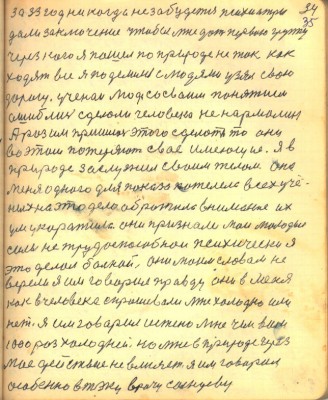 34
35
за 33 годни когда не забудется психиатры
дали заключение чтобы мне дот первою группу
через ного я пошел по природе не так как
ходят все я поделился с людями узял свою
дорогу. ученаи люди сосвоим понятием
ошиблис сделом человека не нармалин
этого сделоть то они
во этом потеряют своё имеющие. Я в
природе заслужил своим телом она
меня одного для показо пожелела всех учё-
ных на это дело обротила внимание их
ум укоратила. они признали маи молодые
силы не трудоспособнои психически я
это делал болной, они моим словам не
верели я им говорил правду они в меня
как в человека спрошвали мне холодно или
нет. я им говорил мне чем вам
1000 раз холодней. но мне в природе через
мое действие не влияет я им говорил
особенно врачу